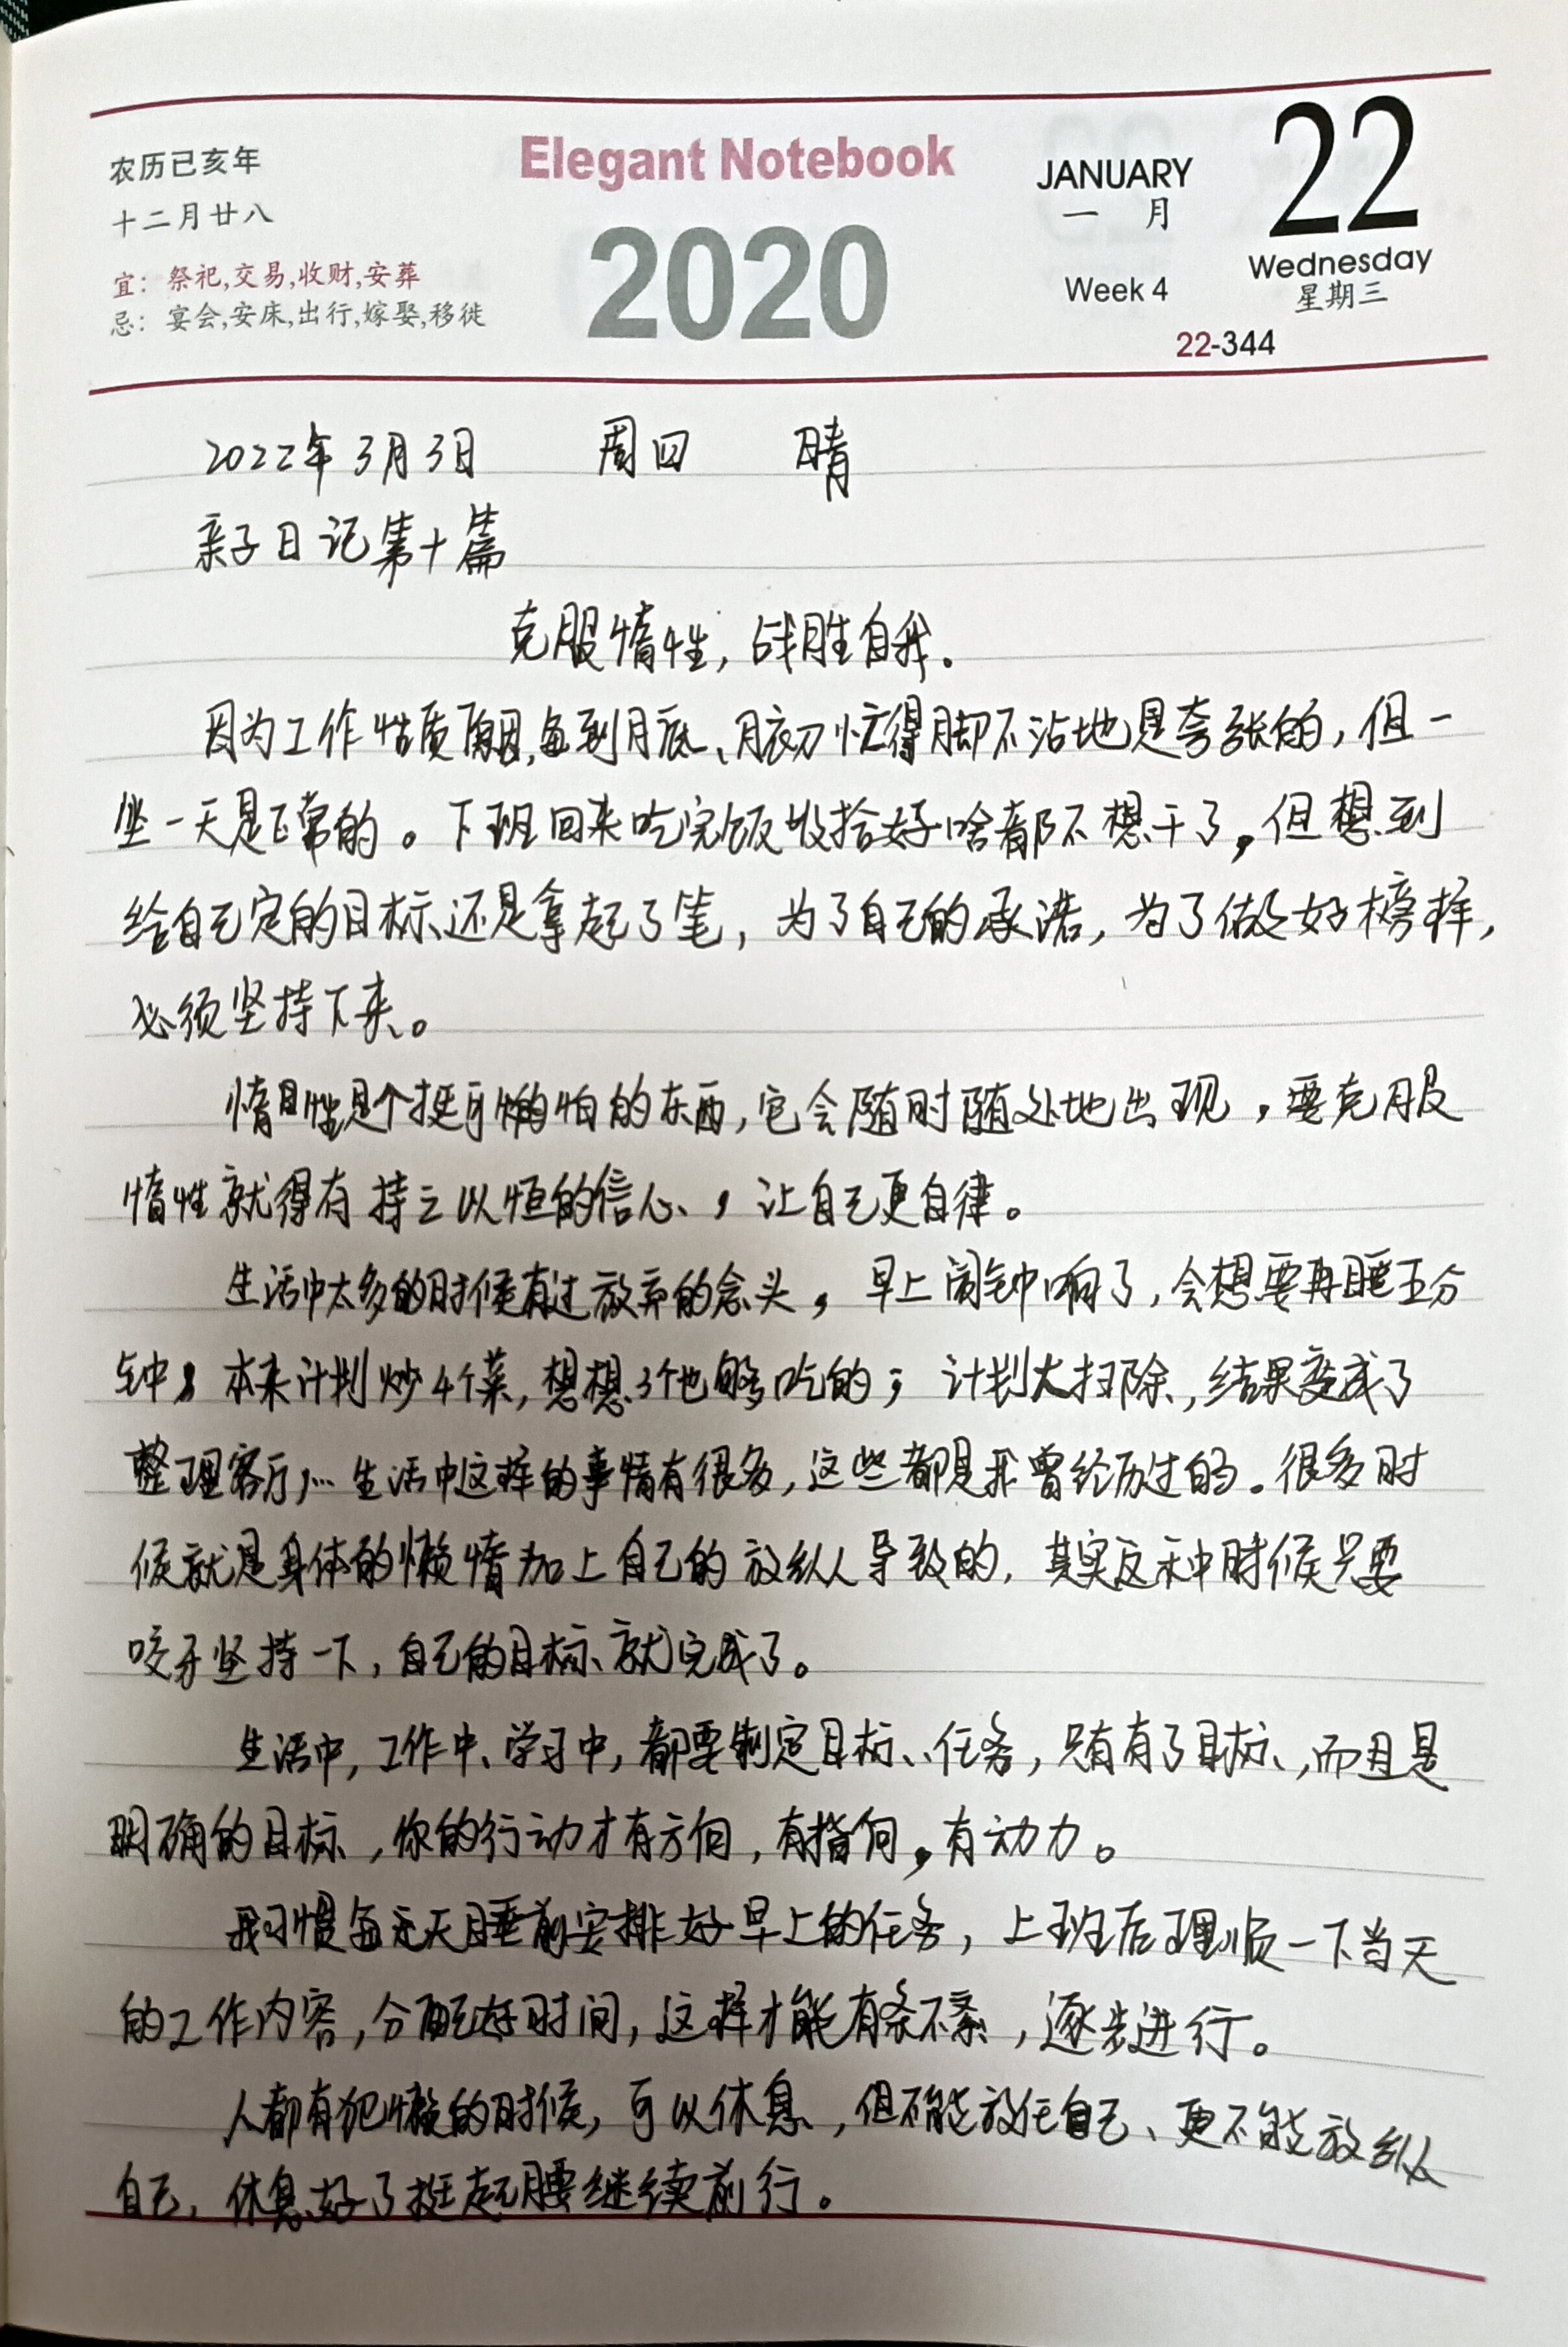 农历己亥年
十二月廿八
宜：祭祀,交易,收财,安葬
忌：宴会,安床,出行,嫁娶,移徙
Elegant Notebook
2020
JANUARY
一 月
Week 4
22
Wednesday
星期三
22-344
2022年3月3日 周四 晴
亲子日记第十篇
克服惰性，战胜自我.
因为工作性质原因,每到月底、月初忙得脚不沾地是夸张的，但一
坐一天是正常的。下班回来吃完饭收拾好啥都不想干了，但想到
给自己定的目标还是拿起了笔，为了自己的承诺，为了做好榜样，
必须坚持下来。
惰性是个挺可怕的东西，它会随时随处地出现，要克服
惰性就得有持之以恒的信心，让自己更自律。
生活中太多的时候有过放弃的念头，早上闹钟响了，会想要再睡五分
钟；本来计划炒4个菜，想想3个也够吃的；计划大扫除，结果变成了
整理客厅，… 生活中这样的事情有很多，这些都是我曾经历过的。很多时
候就是身体的懒惰加上自己的放纵导致的，其实这种时候只要
咬牙坚持一下，自己的目标就完成了。
生活中，工作中、学习中，都要制定目标、任务，只有有了目标，而且是
明确的目标，你的行动才有方向，有指向，有动力。
我习惯每天睡前安排好早上的任务，上班后理顺一下当天
的工作内容，分配好时间，这样才能有条不紊，逐步进行。
人都有犯懒的时候，可以休息，但不能放任自己、更不能放纵
自己，休息好了挺起腰继续前行。